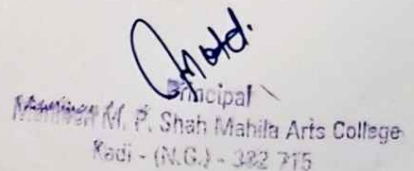 Principal
M. P. Shah Mahila Arts College
Kadi - (N.G.) - 382 715